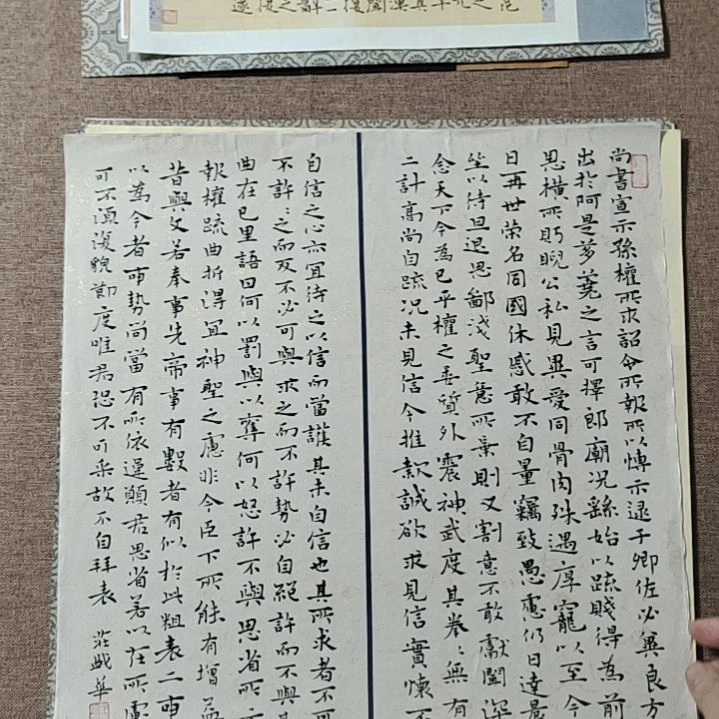 尚書宣示孫權所求詔令所報所以博示逮于卿佐必冀良方
出於阿是芻蕘之言可擇郎廟況繇始以疏賤得為前
恩橫所眄睨公私見異愛同骨肉殊遇厚寵以至今
日再世榮名同國休慼敢不自量竊致愚慮仍日達晨
坐以待旦退思鄙淺聖意所棄則又割意不敢獻聞深
念天下今為已平權之委質外震神武度其拳〻無有
二計高尚自疏況未見信今推款誠欲求見信實懷不
自信之心亦宜待之以信而當護其未自信也其所求者不可
不許〻之而反不必可與求之而不許勢必自絕許而不與其
曲在已里語曰何以罰與以奪何以怒許不與思省所示
報權疏曲折得宜神聖之慮非今臣下所能有增益
昔與文若奉事先帝事有數者有似於此粗表二事
以為今者事勢尚當有所依違願君思省若以在所慮
可不須復貌節度唯君恐不可采故不自拜表 莊 華